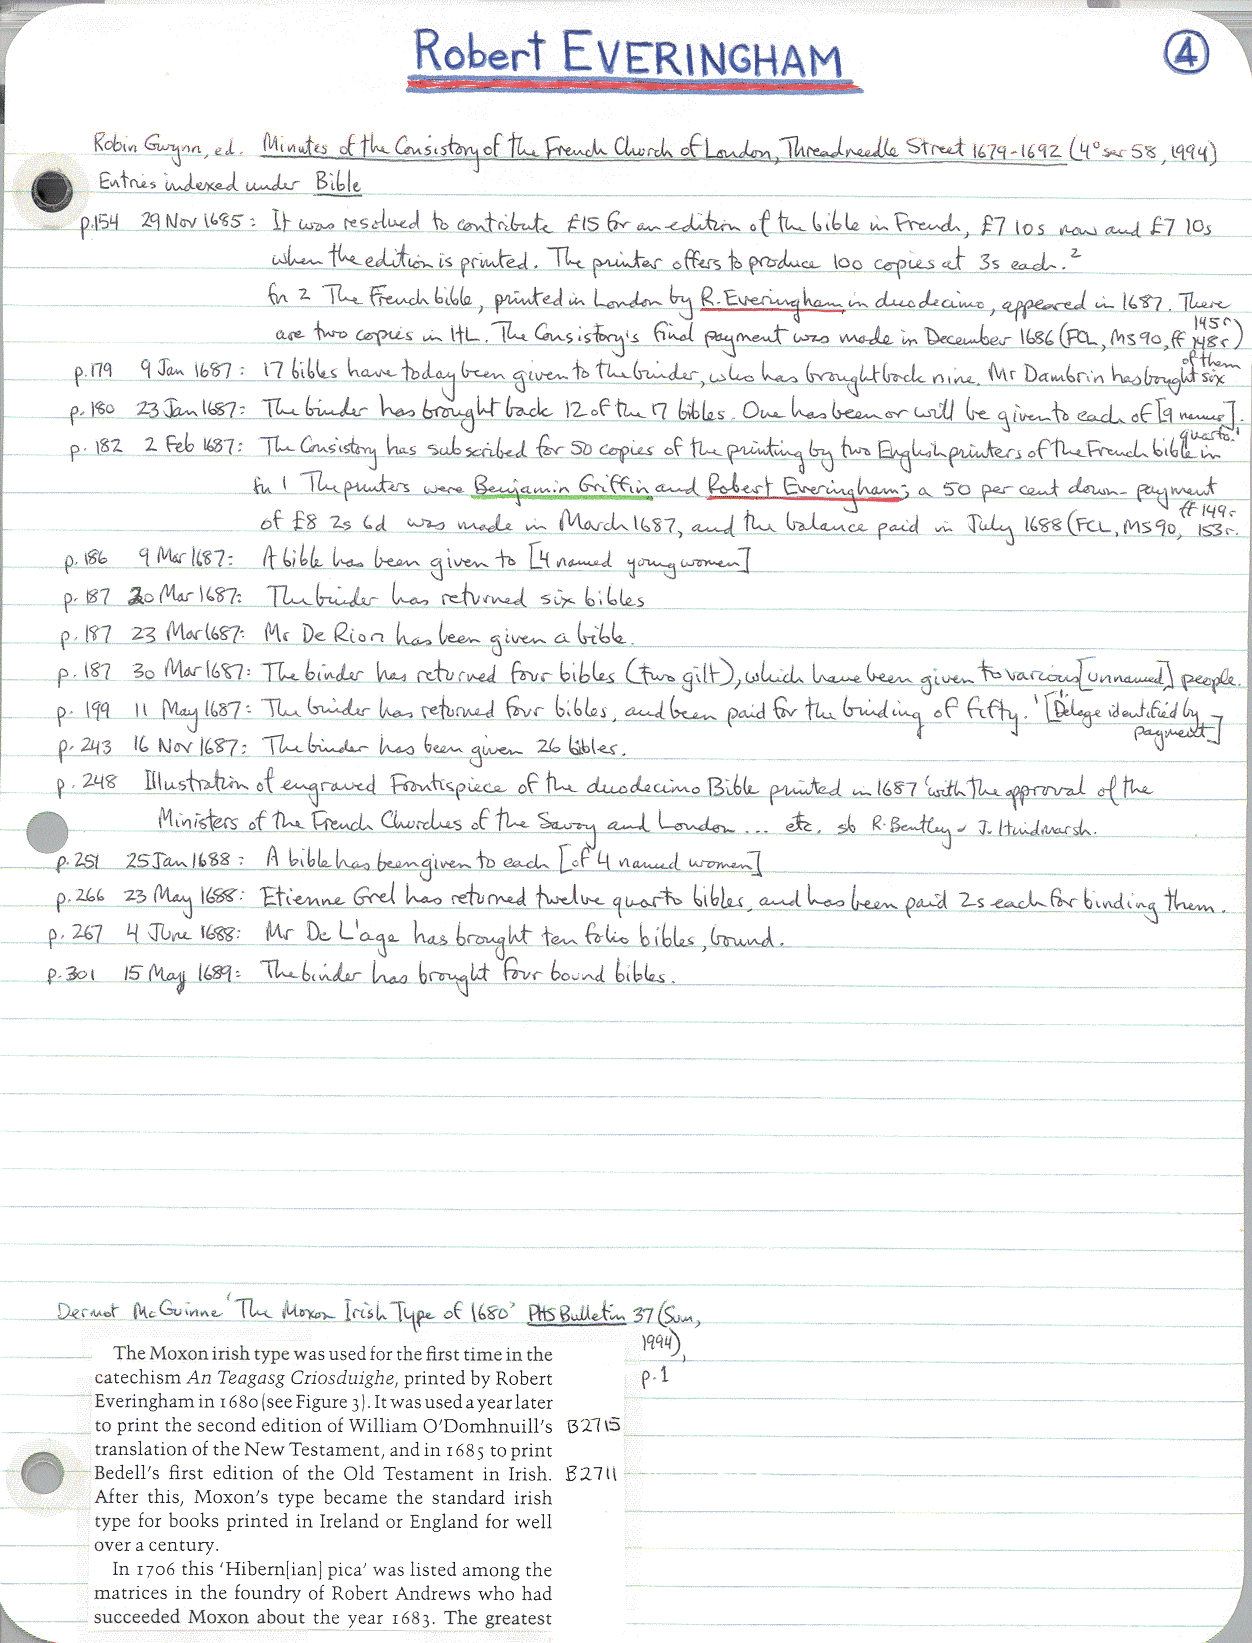 Robert EVERINGHAM
4
Robin Gwynn, ed. Minutes of the Consistory of the French Church of London, Threadneedle Street 1679-1692 (4° ser 58, 1994)
Entries indexed under Bible
p.154 29 Nov 1685: It was resolved to contribute £15 for an edition of the bible in French, £7 10s now and £7 10s
when the edition is printed. The printer offers to produce 100 copies at 3s each.²
fn 2 The French bible, printed in London by R. Everingham in duodecimo, appeared in 1687. There
are two copies in HL. The Consistory's final payment was made in December 1686 (FCL, MS 90, ff 145r, 148r)
p.179 9 Jan 1687: 17 bibles have today been given to the binder, who has brought back nine. Mr Dambrin has bought six of them
p. 180 23 Jan 1687: The binder has brought back 12 of the 17 bibles. One has been or will be given to each of [9 names].
p. 182 2 Feb 1687: The Consistory has subscribed for 50 copies of the printing by two English printers of the French bible in quarto.¹
fn 1 The printers were Benjamin Griffin and Robert Everingham; a 50 per cent down-payment
of £8 2s 6d was made in March 1687, and the balance paid in July 1688 (FCL, MS 90, ff 149r 153r.
p. 186 9 Mar 1687: A bible has been given to [4 named young women]
p. 187 20 Mar 1687: The binder has returned six bibles
p. 187 23 Mar 1687: Mr De Rion has been given a bible.
p. 187 30 Mar 1687: The binder has returned four bibles (two gilt), which have been given to various [unnamed] people.
p. 199 11 May 1687: The binder has returned four bibles, and been paid for the binding of fifty. ' [Delage identified by payment]
p. 243 16 Nov 1687: The binder has been given 26 bibles.
p. 248 Illustration of engraved Frontispiece of the duodecimo Bible printed in 1687 'with the approval of the
Ministers of the French Churches of the Savoy and London ... etc. sb R. Bentley & J. Hindmarsh.
p. 251 25 Jan 1688: A bible has been given to each [of 4 named women]
p. 266 23 May 1688: Etienne Grel has returned twelve quarto bibles, and has been paid 2s each for binding them.
p. 267 4 June 1688: Mr De L'age has brought ten folio bibles, bound.
p. 301 15 May 1689: The binder has brought four bound bibles.
Dermot McGuinne 'The Moxon Irish Type of 1680' PHS Bulletin 37 (Sum,
1994),
p. 1
The Moxon irish type was used for the first time in the
catechism An Teagasg Criosduighe, printed by Robert
Everingham in 1680 (see Figure 3). It was used a year later
to print the second edition of William O'Domhnuill's B2715
translation of the New Testament, and in 1685 to print
Bedell's first edition of the Old Testament in Irish. B2711
After this, Moxon's type became the standard irish
type for books printed in Ireland or England for well
over a century.
In 1706 this 'Hibern[ian] pica' was listed among the
matrices in the foundry of Robert Andrews who had
succeeded Moxon about the year 1683. The greatest